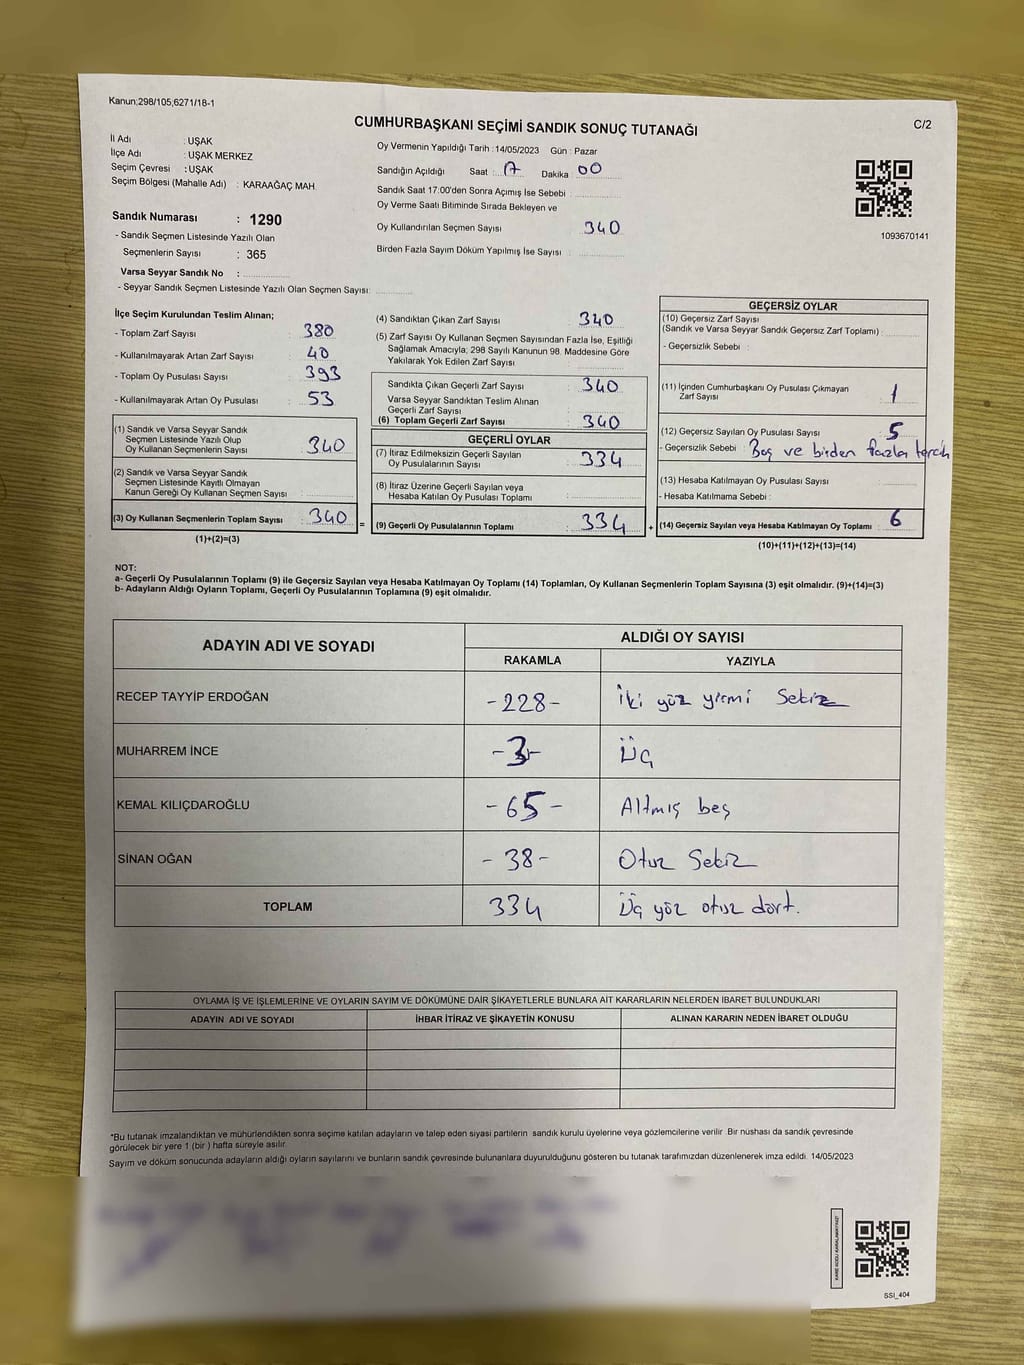 Kanun;298/105,6271/18-1
C/2
CUMHURBAŞKANI SEÇİMİ SANDIK SONUÇ TUTANAĞI
İl Adı : UŞAK
İlçe Adı : UŞAK MERKEZ
Seçim Çevresi : UŞAK
Seçim Bölgesi (Mahalle Adı) : KARAAĞAÇ MAH.
Sandık Numarası : 1290
- Sandık Seçmen Listesinde Yazılı Olan
Seçmenlerin Sayısı : 365
Varsa Seyyar Sandık No :
- Seyyar Sandık Seçmen Listesinde Yazılı Olan Seçmen Sayısı:
Oy Vermenin Yapıldığı Tarih :14/05/2023 Gün : Pazar
Sandığın Açıldığı Saat : 17 Dakika : 00
Sandık Saat 17:00'den Sonra Açımış İse Sebebi :
Oy Verme Saati Bitiminde Sırada Bekleyen ve
Oy Kullandırılan Seçmen Sayısı : 340
Birden Fazla Sayım Döküm Yapılmış İse Sayısı :
1093670141
İlçe Seçim Kurulundan Teslim Alınan;
- Toplam Zarf Sayısı : 380
- Kullanılmayarak Artan Zarf Sayısı : 40
- Toplam Oy Pusulası Sayısı : 393
- Kullanılmayarak Artan Oy Pusulası : 53
(1) Sandık ve Varsa Seyyar Sandık
Seçmen Listesinde Yazılı Olup
Oy Kullanan Seçmenlerin Sayısı : 340
(2) Sandık ve Varsa Seyyar Sandık
Seçmen Listesinde Kayıtlı Olmayan
Kanun Gereği Oy Kullanan Seçmen Sayısı :
(3) Oy Kullanan Seçmenlerin Toplam Sayısı : 340 =
(1)+(2)=(3)
(4) Sandıktan Çıkan Zarf Sayısı : 340
(5) Zarf Sayısı Oy Kullanan Seçmen Sayısından Fazla İse, Eşitliği
Sağlamak Amacıyla; 298 Sayılı Kanunun 98. Maddesine Göre
Yakılarak Yok Edilen Zarf Sayısı :
Sandıkta Çıkan Geçerli Zarf Sayısı : 340
Varsa Seyyar Sandıktan Teslim Alınan
Geçerli Zarf Sayısı :
(6) Toplam Geçerli Zarf Sayısı : 340
GEÇERLİ OYLAR
(7) İtiraz Edilmeksizin Geçerli Sayılan
Oy Pusulalarının Sayısı : 334
(8) İtiraz Üzerine Geçerli Sayılan veya
Hesaba Katılan Oy Pusulası Toplamı :
(9) Geçerli Oy Pusulalarının Toplamı : 334 +
GEÇERSİZ OYLAR
(10) Geçersiz Zarf Sayısı
(Sandık ve Varsa Seyyar Sandık Geçersiz Zarf Toplamı) :
- Geçersizlik Sebebi :
(11) İçinden Cumhurbaşkanı Oy Pusulası Çıkmayan
Zarf Sayısı : 1
(12) Geçersiz Sayılan Oy Pusulası Sayısı : 5
- Geçersizlik Sebebi : Boş ve birden fazla tercih
(13) Hesaba Katılmayan Oy Pusulası Sayısı :
- Hesaba Katılmama Sebebi :
(14) Geçersiz Sayılan veya Hesaba Katılmayan Oy Toplamı : 6
(10)+(11)+(12)+(13)=(14)
NOT:
a- Geçerli Oy Pusulalarının Toplamı (9) ile Geçersiz Sayılan veya Hesaba Katılmayan Oy Toplamı (14) Toplamları, Oy Kullanan Seçmenlerin Toplam Sayısına (3) eşit olmalıdır. (9)+(14)=(3)
b- Adayların Aldığı Oyların Toplamı, Geçerli Oy Pusulalarının Toplamına (9) eşit olmalıdır.
ADAYIN ADI VE SOYADI ALDIĞI OY SAYISI
RAKAMLA YAZIYLA
RECEP TAYYİP ERDOĞAN -228- İki yüz yirmi Sekiz
MUHARREM İNCE -3- Üç
KEMAL KILIÇDAROĞLU -65- Altmış beş
SİNAN OĞAN -38- Otuz Sekiz
TOPLAM 334 Üç yüz otuz dört.
OYLAMA İŞ VE İŞLEMLERİNE VE OYLARIN SAYIM VE DÖKÜMÜNE DAİR ŞİKAYETLERLE BUNLARA AİT KARARLARIN NELERDEN İBARET BULUNDUKLARI
ADAYIN ADI VE SOYADI İHBAR İTİRAZ VE ŞİKAYETİN KONUSU ALINAN KARARIN NEDEN İBARET OLDUĞU
*Bu tutanak imzalandıktan ve mühürlendikten sonra seçime katılan adayların ve talep eden siyasi partilerin sandık kurulu üyelerine veya gözlemcilerine verilir. Bir nüshası da sandık çevresinde
görülecek bir yere 1 (bir ) hafta süreyle asılır.
Sayım ve döküm sonucunda adayların aldığı oyların sayılarını ve bunların sandık çevresinde bulunanlara duyurulduğunu gösteren bu tutanak tarafımızdan düzenlenerek imza edildi. 14/05/2023
KARE KODU KARALAMAYINIZ!
SSI_404